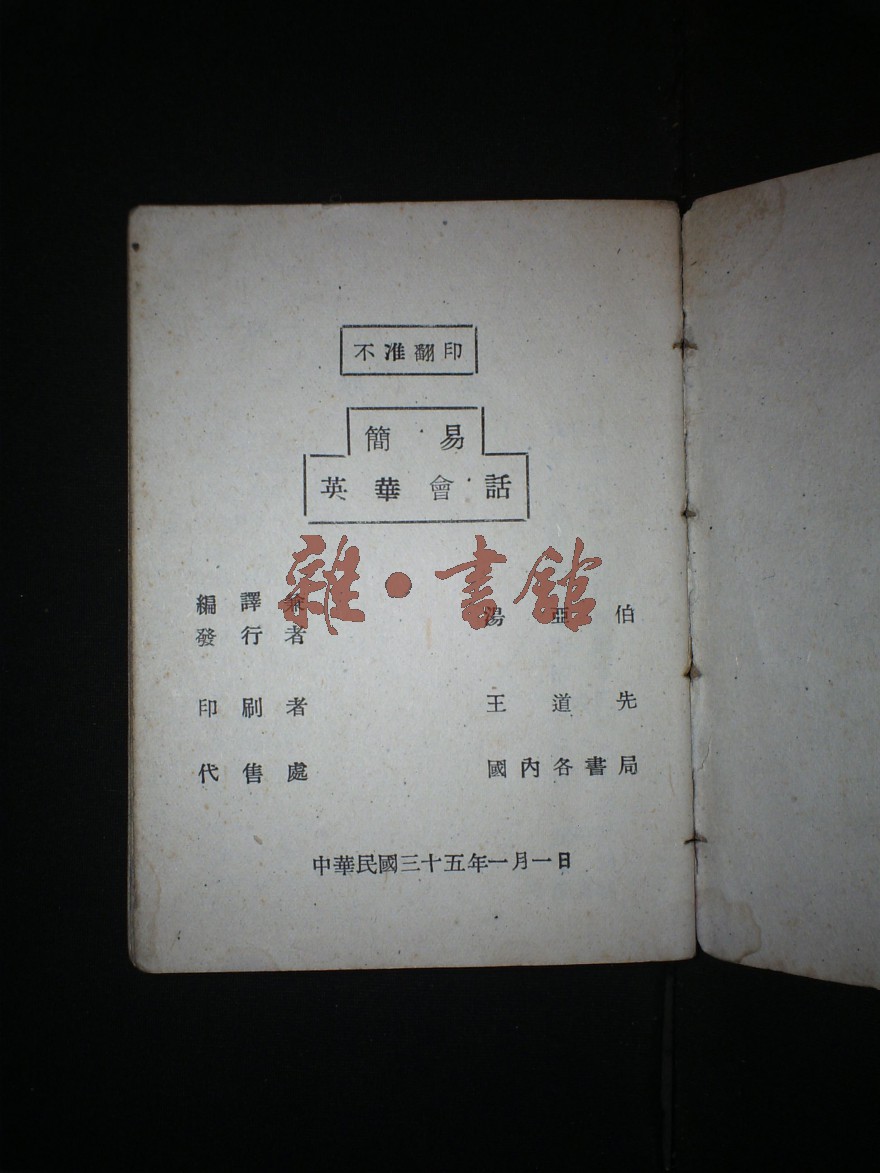 不准翻印
簡易
英華會話
雜·書館
編譯兼
發行者
湯亞伯
印刷者 王道先
代售處 國內各書局
中華民國三十五年一月一日